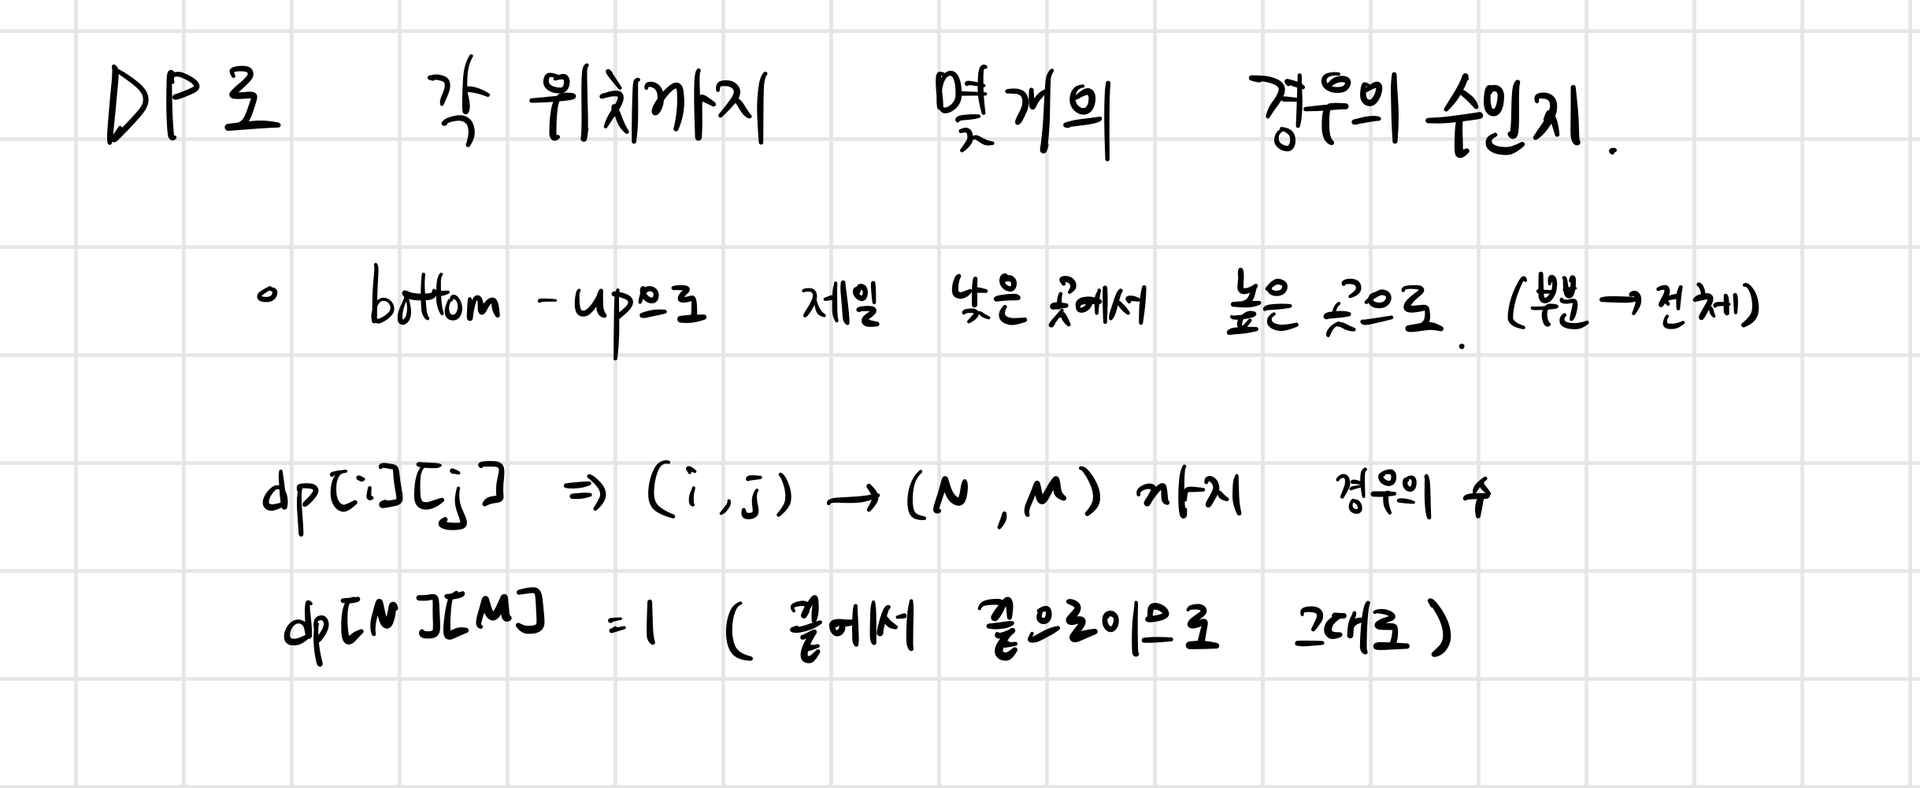 DP로 각 위치까지 몇개의 경우의 수인지.
◦ bottom-up으로 제일 낮은 곳에서 높은 곳으로. (부분→전체)
dp[i][j] ⇒ (i,j) → (N,M) 까지 경우의 수
dp[N][M] = 1 (끝에서 끝으로이므로 그대로)